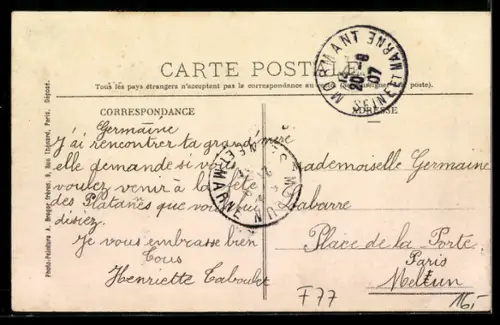 CARTE POSTALE
Tous les pays étrangers n'acceptent pas la correspondance au poste).
CORRESPONDANCE
Germaine
J'ai rencontrer ta grand'mère
elle demande si vous
voulez venir à la fête
des Platanes que vous lui
disiez.
Je vous embrasse bien
Tous
Henriette Taboulet
ADRESSE
Mademoiselle Germaine
Labarre
Place de la Porte
Paris
Melun
MORMANT
SEINE ET MARNE
20 -8
07
MELUN
ET MARNE
F77
16,-
Photo-Peinture A. Breger Frères, 9, Rue Thénard, Paris. Déposé.